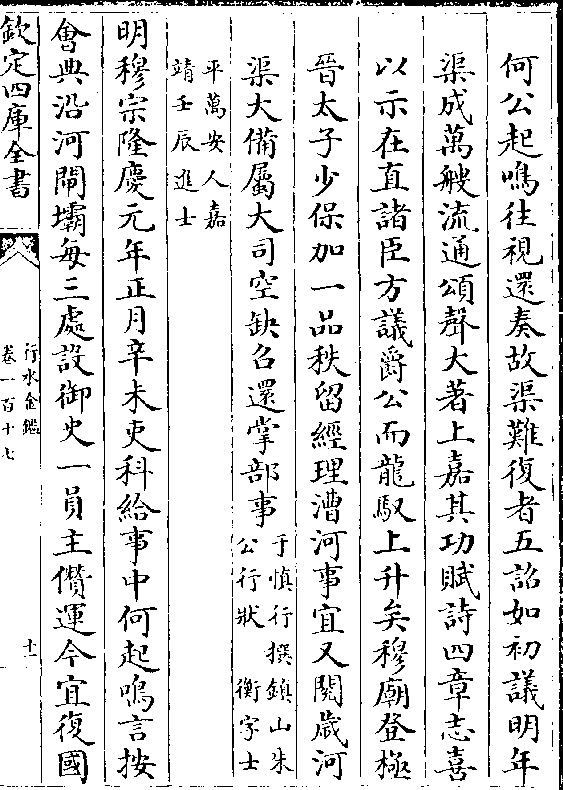 何公起鳴往視還奏故渠難復者五詔如初議明年
渠成萬艘流通頌聲大著上嘉其功賦詩四章志喜
以示在直諸臣方議爵公而龍馭上升矣穆廟登極
晉太子少保加一品秩留經理漕河事宜又閱歲河
渠大備屬大司空缺召還掌部事
于慎行撰鎮山朱
公行狀　衡字士
平萬安人嘉
靖壬辰進士
明穆宗隆慶元年正月辛未吏科給事中何起鳴言按
會典沿河閘壩每三處設御史一員主儹運今宜復國
欽定四庫全書
行水金鑑
卷一百十七
十一